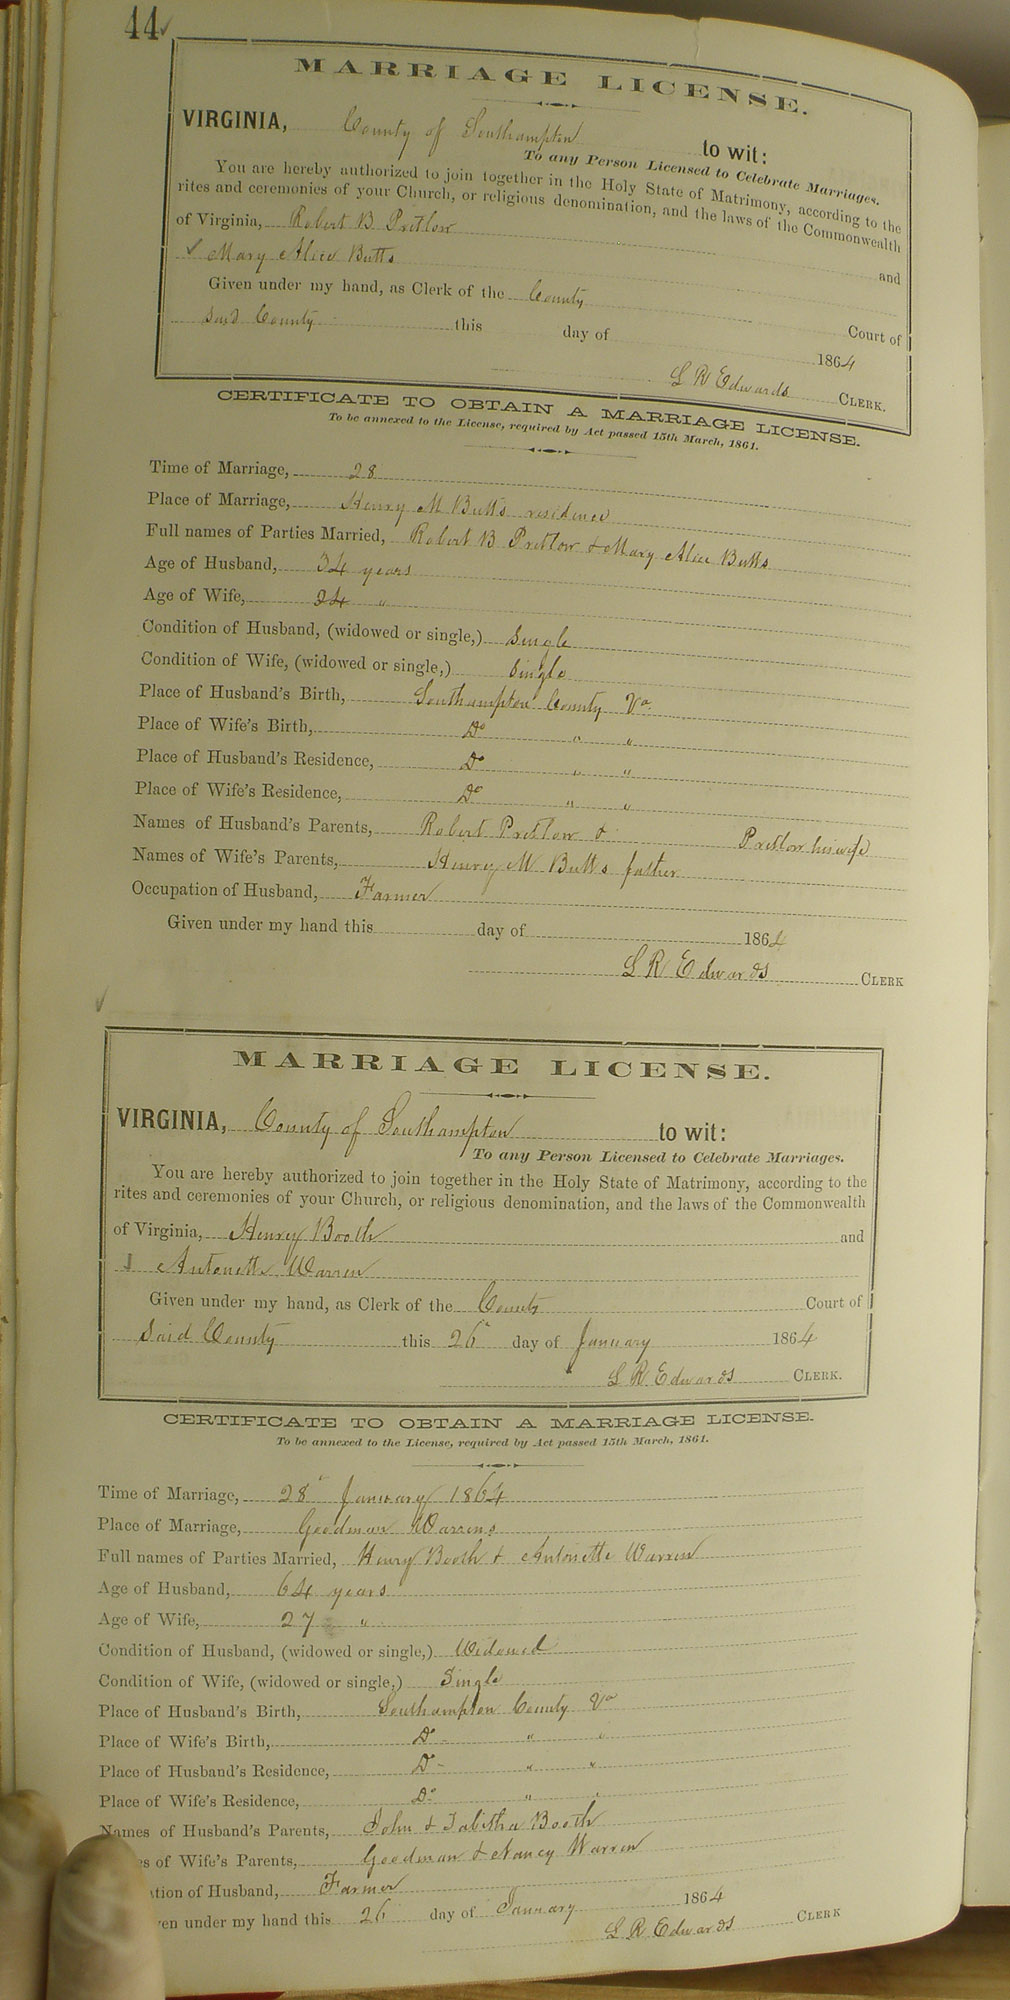 44
MARRIAGE LICENSE.
VIRGINIA, County of Southampton to wit:
To any Person Licensed to Celebrate Marriages.
You are hereby authorized to join together in the Holy State of Matrimony, according to the
rites and ceremonies of your Church, or religious denomination, and the laws of the Commonwealth
of Virginia, Robert B Pretlow and
✓ Mary Alice Butts
Given under my hand, as Clerk of the County Court of
said County this day of 1864
L R Edwards CLERK.
CERTIFICATE TO OBTAIN A MARRIAGE LICENSE.
To be annexed to the License, required by Act passed 15th March, 1861.
Time of Marriage, 28
Place of Marriage, Henry M Butts residence
Full names of Parties Married, Robert B Pretlow & Mary Alice Butts
Age of Husband, 34 years
Age of Wife, 24 "
Condition of Husband, (widowed or single,) Single
Condition of Wife, (widowed or single,) Single
Place of Husband's Birth, Southampton County Va.
Place of Wife's Birth, Do " "
Place of Husband's Residence, Do " "
Place of Wife's Residence, Do " "
Names of Husband's Parents, Robert Pretlow & Pretlow his wife
Names of Wife's Parents, Henry M Butts father
Occupation of Husband, Farmer
Given under my hand this day of 1864
L R Edwards CLERK
MARRIAGE LICENSE.
VIRGINIA, County of Southampton to wit:
To any Person Licensed to Celebrate Marriages.
You are hereby authorized to join together in the Holy State of Matrimony, according to the
rites and ceremonies of your Church, or religious denomination, and the laws of the Commonwealth
of Virginia, Henry Booth and
Antonette Warren
Given under my hand, as Clerk of the County Court of
Said County this 26 day of January 1864
L R Edwards CLERK.
CERTIFICATE TO OBTAIN A MARRIAGE LICENSE.
To be annexed to the License, required by Act passed 15th March, 1861.
Time of Marriage, 28 January 1864
Place of Marriage, Goodman Warrens
Full names of Parties Married, Henry Booth & Antonette Warren
Age of Husband, 64 years
Age of Wife, 27 "
Condition of Husband, (widowed or single,) Widowed
Condition of Wife, (widowed or single,) Single
Place of Husband's Birth, Southampton County Va
Place of Wife's Birth, Do " "
Place of Husband's Residence, Do " "
Place of Wife's Residence, Do " "
Names of Husband's Parents, John & Tabitha Booth
es of Wife's Parents, Goodman & Nancy Warren
tion of Husband, Farmer
en under my hand this 26 day of January 1864
L R Edwards CLERK